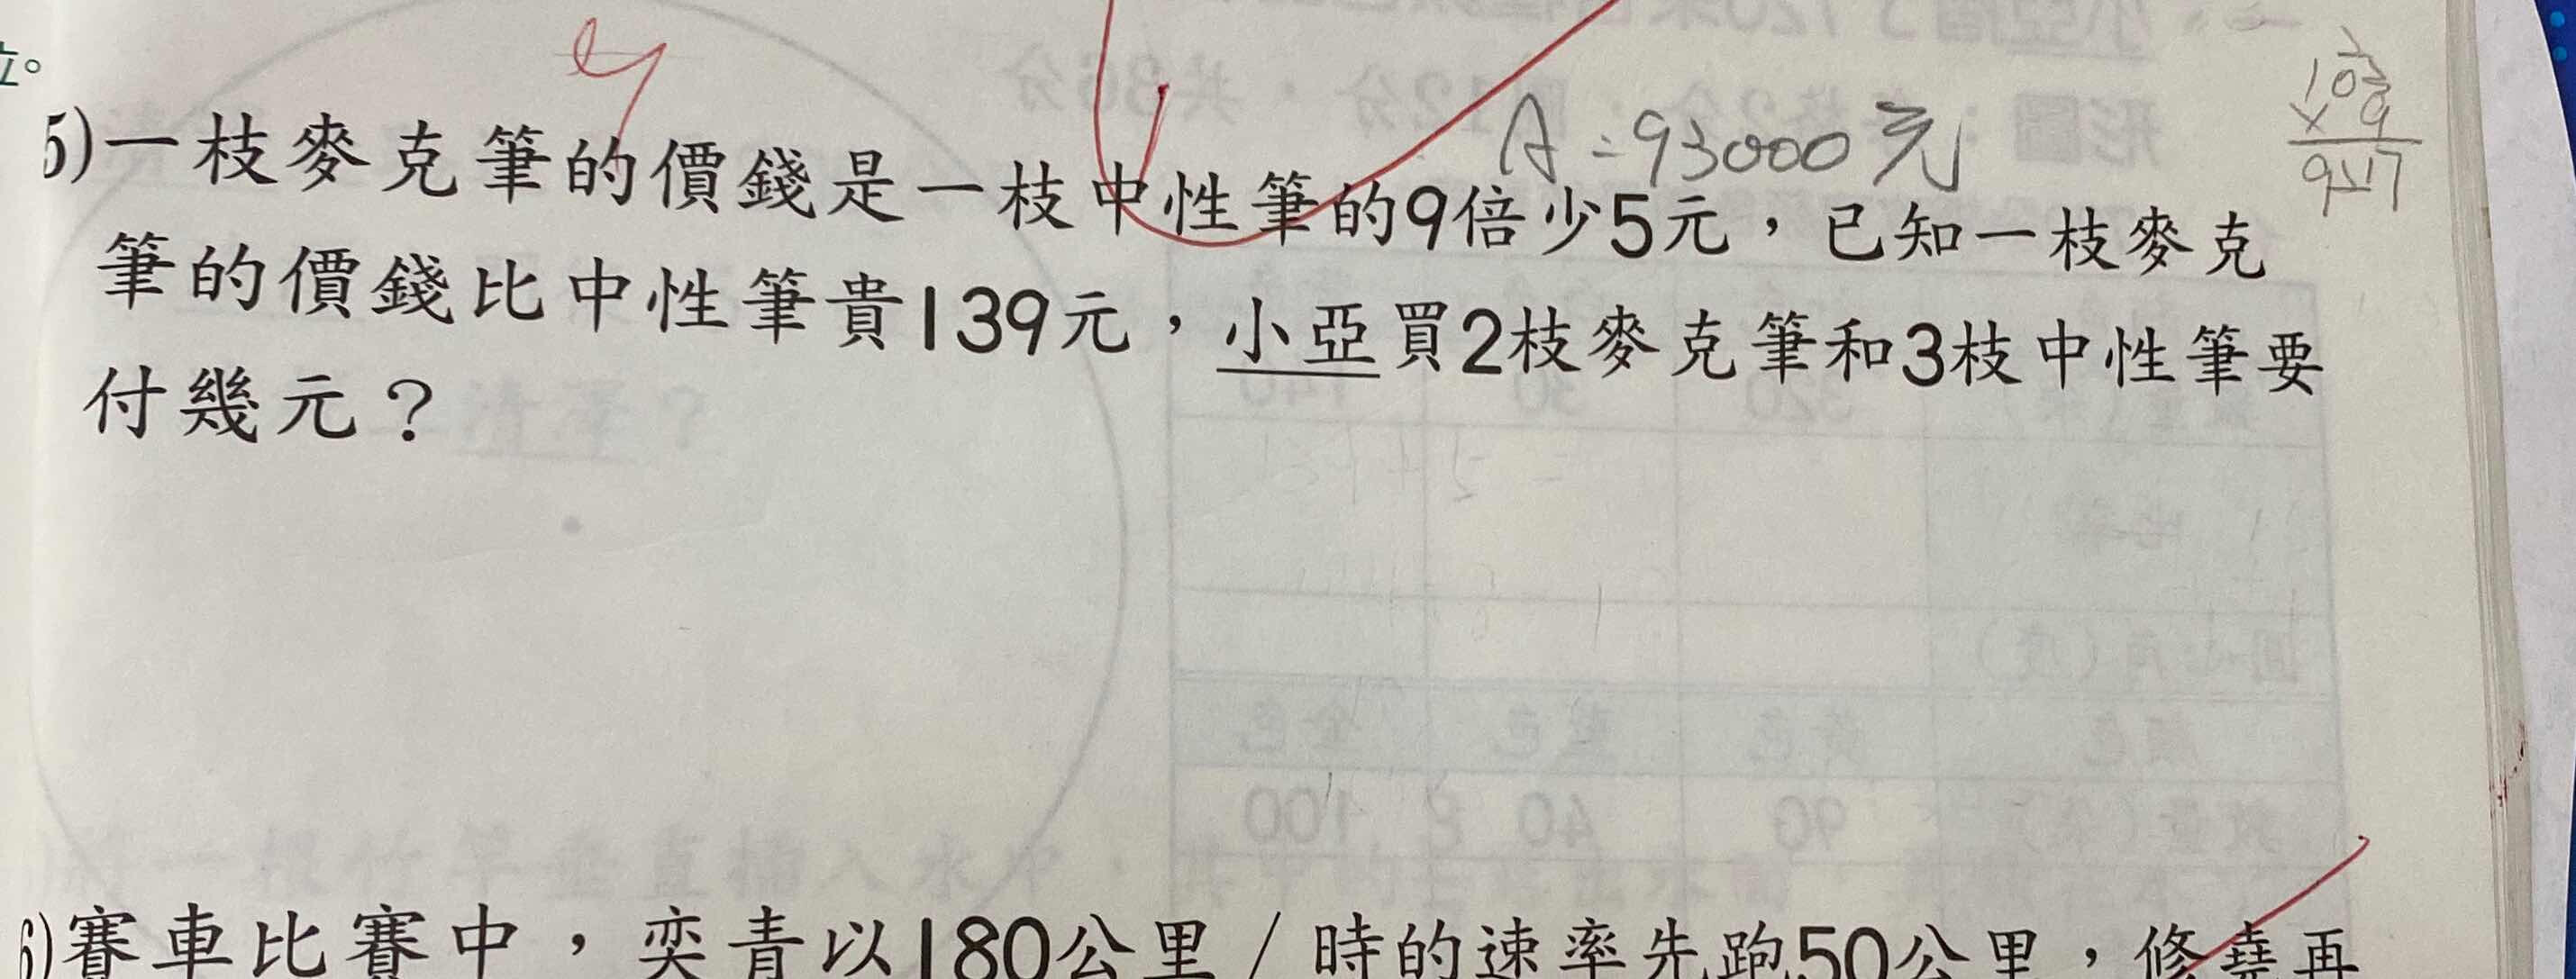 位。
A=93000元
103
×9
927
5)一枝麥克筆的價錢是一枝中性筆的9倍少5元，已知一枝麥克
筆的價錢比中性筆貴139元，小亞買2枝麥克筆和3枝中性筆要
付幾元？
6)賽車比賽中，奕青以180公里／時的速率先跑50公里，修堯再